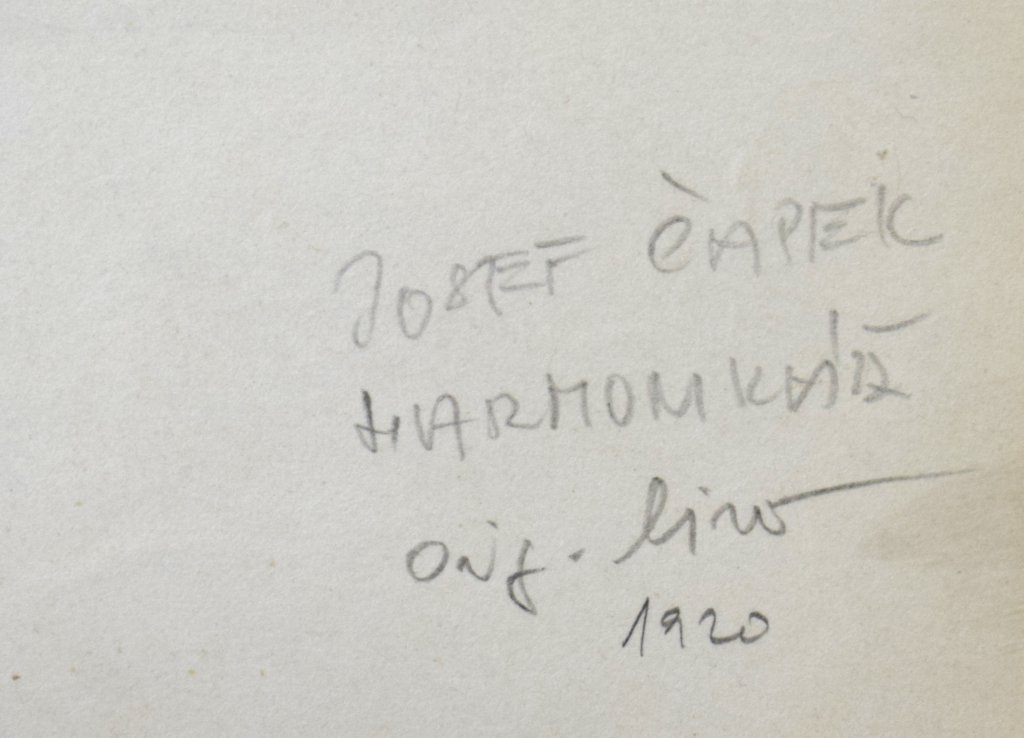 JOSEF ČAPEK
HARMONIKÁŘ
orig. lino
1920